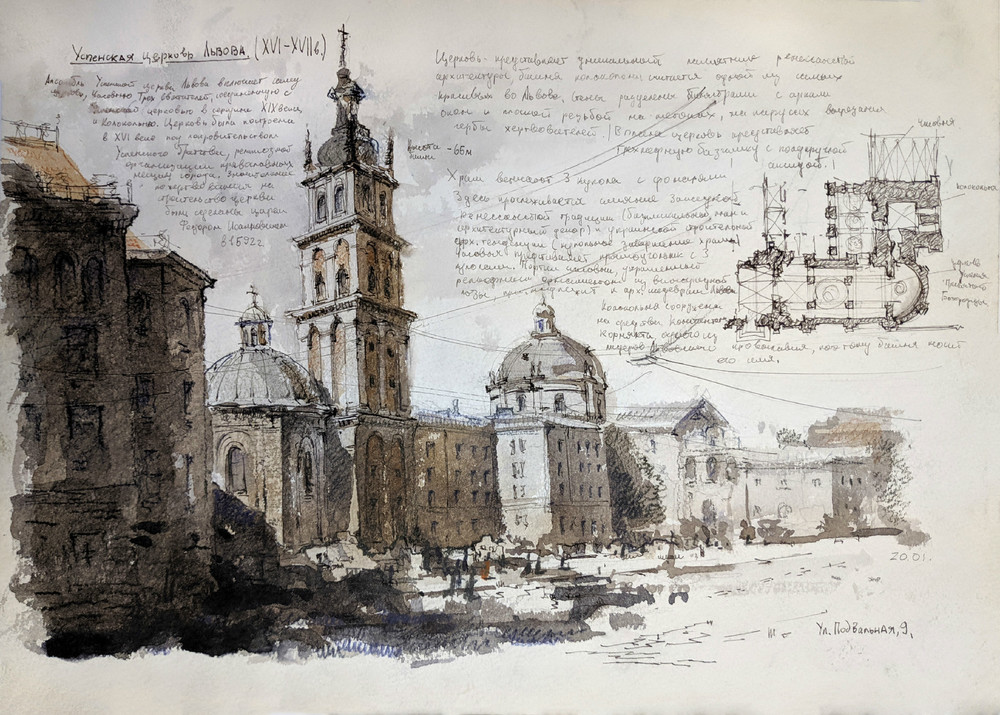 Успенская церковь Львова. (XVI-XVIIв.)
Успенской церкви Львова включает саму
часовню Трех святителей, соединенную с
церковью в середине XIX века,
и колокольню. Церковь была построена
в XVI веке под покровительством
Успенского братства, религиозной
организации православных
мещан города, значительные
пожертвования на
строительство церкви
были сделаны царем
Федором Иоанновичем
в 1592г.
высота
башни -65м
Церковь представляет уникальный памятник ренессансной
архитектуры, башня колокольни считается одной из самых
красивых во Львове. Стены разделены пилястрами с арками
окон и резьбой на метопах, на парусах
гербы жертвователей. В плане церковь представляет
Трехнефную базилику с полукруглой
апсидой.
Храм венчают 3 купола с фонарями
Здесь прослеживается влияние западной
ренессансной традиции (базиликальный план и
архитектурный декор) и украинской строительной
завершение храма)
с 3
куполами. Портик часовни, украшенный
рельефным из виноградной
лозы, принадлежит к арх. шедеврам Львова
Колокольня сооружена
на средства Константина
Корнякта, одного из
лидеров Львовского православия, поэтому башня носит
его имя.
часовня
колокольня
церковь
Успения
Пресвятой
Богородицы
20.01.
Ул. Подвальная, 9.